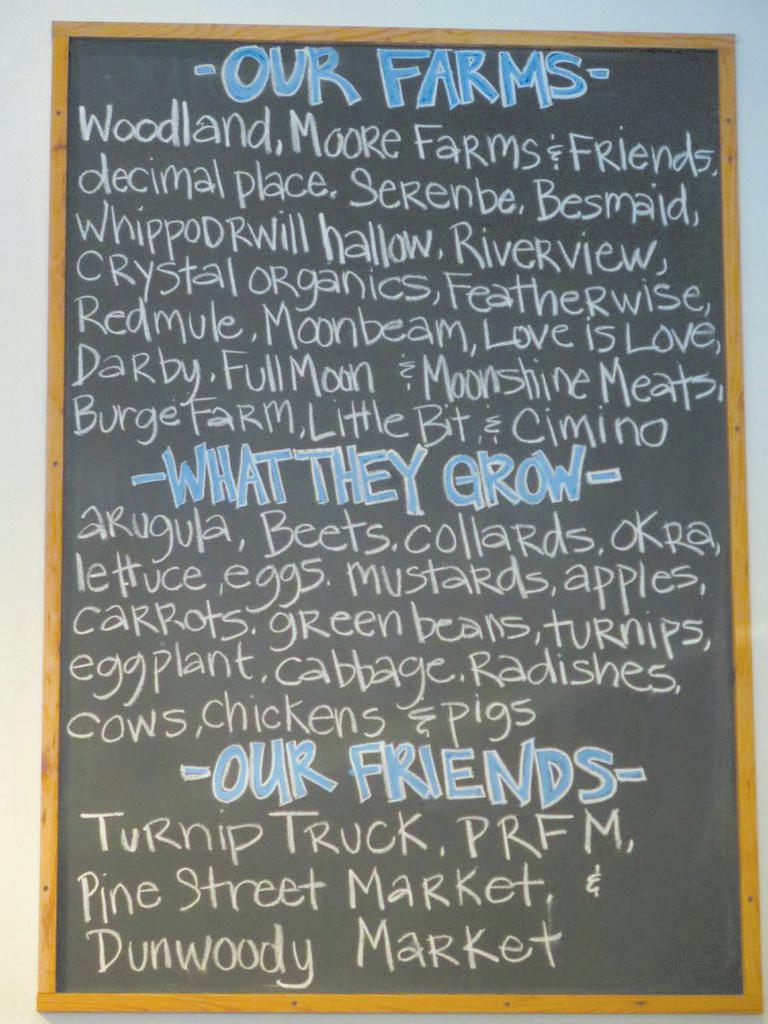 -OUR FARMS-
Woodland, Moore Farms & Friends,
decimal place, Serenbe, Besmaid,
Whippoorwill hallow, Riverview,
Crystal organics, Featherwise,
Redmule, Moonbeam, Love is Love,
Darby, Full Moon & Moonshine Meats,
Burge Farm, Little Bit, & Cimino
-WHAT THEY GROW-
arugula, Beets, collards, okra,
lettuce, eggs, mustards, apples,
carrots, green beans, turnips,
eggplant, cabbage, Radishes,
cows, chickens & pigs
-OUR FRIENDS-
Turnip Truck, PRFM,
Pine Street Market, &
Dunwoody Market